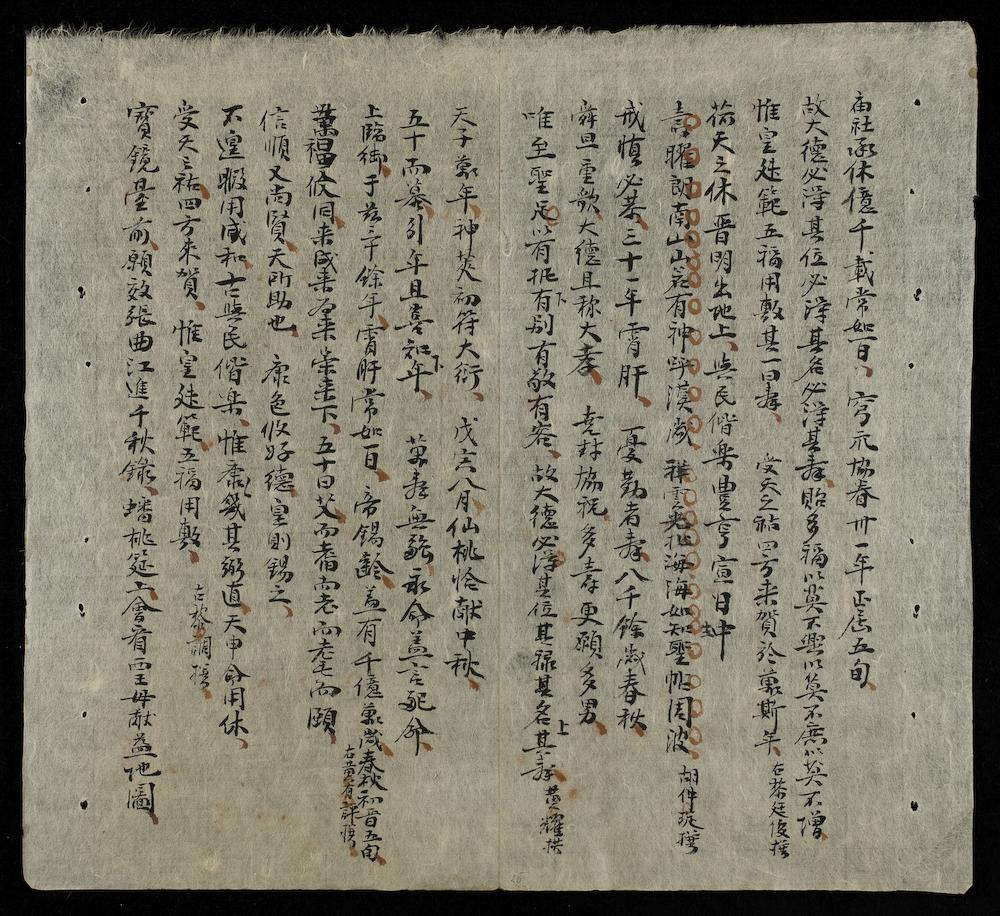 庙社承休億千載常如一日、穹示協眷卅一年正屆五旬、
故大德必淂其位必淂其名必淂其壽貽多福以莫不興以莫不庶以莫不增、
惟皇建範五福用敷其一曰壽、受天之祜四方来賀於萬斯年、右黎廷俊撰
荷天之休晋明出地上、與民偕樂豊亨宜日中
壽曜朗南山山若有神呼漢歲祥雲光北海海如知聖帖周波、胡仲珽撰
戒慎必恭三十一年宵旰、憂勤者壽八千餘歲春秋、
舜旦重歌大德且称大孝、堯封協祝多壽更願多男、
唯至聖足以有执有别有敬有容、故大德必淂其位其祿其名其壽、黄耀拱
天子萬年神莢初符大衍、戊六八月仙桃恰献中秋、
五十而慕引年且喜知年、萬壽無疆永命盖言配命、
上臨御于茲三十餘年宵旰常如一日、帝錫齡盖有千億萬歲春秋初晋五旬、
萬福攸同来咸来崇来下、五十曰艾而耆而老而耄而頤、
信順又尚賢、天所助也、康色攸好德皇則錫之、
不遑暇用咸和、古與民偕樂、惟康幾其弼直、天申命用休、
受天之祜四方来賀、惟皇建範五福用敷、右黎調撰、
寶鏡臺前願效張曲江進千秋錄、蟠桃筵上會看西王母献益地圖、